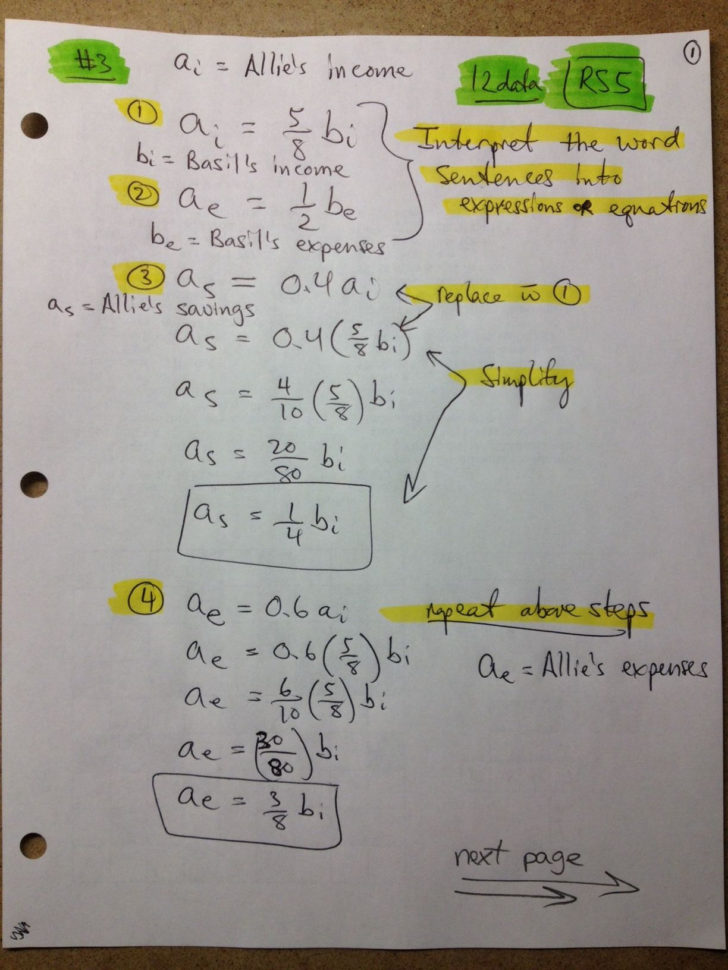 ①
#3 aᵢ = Allie's income 12data RS5
① aᵢ = 5/8 bᵢ
bᵢ = Basil's income
② aₑ = 1/2 bₑ
bₑ = Basil's expenses
Interpret the word
sentences into
expressions or equations
③ aₛ = 0.4 aᵢ replace in ①
aₛ = Allie's savings
aₛ = 0.4(5/8 bᵢ)
Simplify
aₛ = 4/10 (5/8) bᵢ
aₛ = 20/80 bᵢ
aₛ = 1/4 bᵢ
④ aₑ = 0.6 aᵢ repeat above steps
aₑ = 0.6 (5/8) bᵢ aₑ = Allie's expenses
aₑ = 6/10 (5/8) bᵢ
aₑ = (30/80) bᵢ
aₑ = 3/8 bᵢ
next page